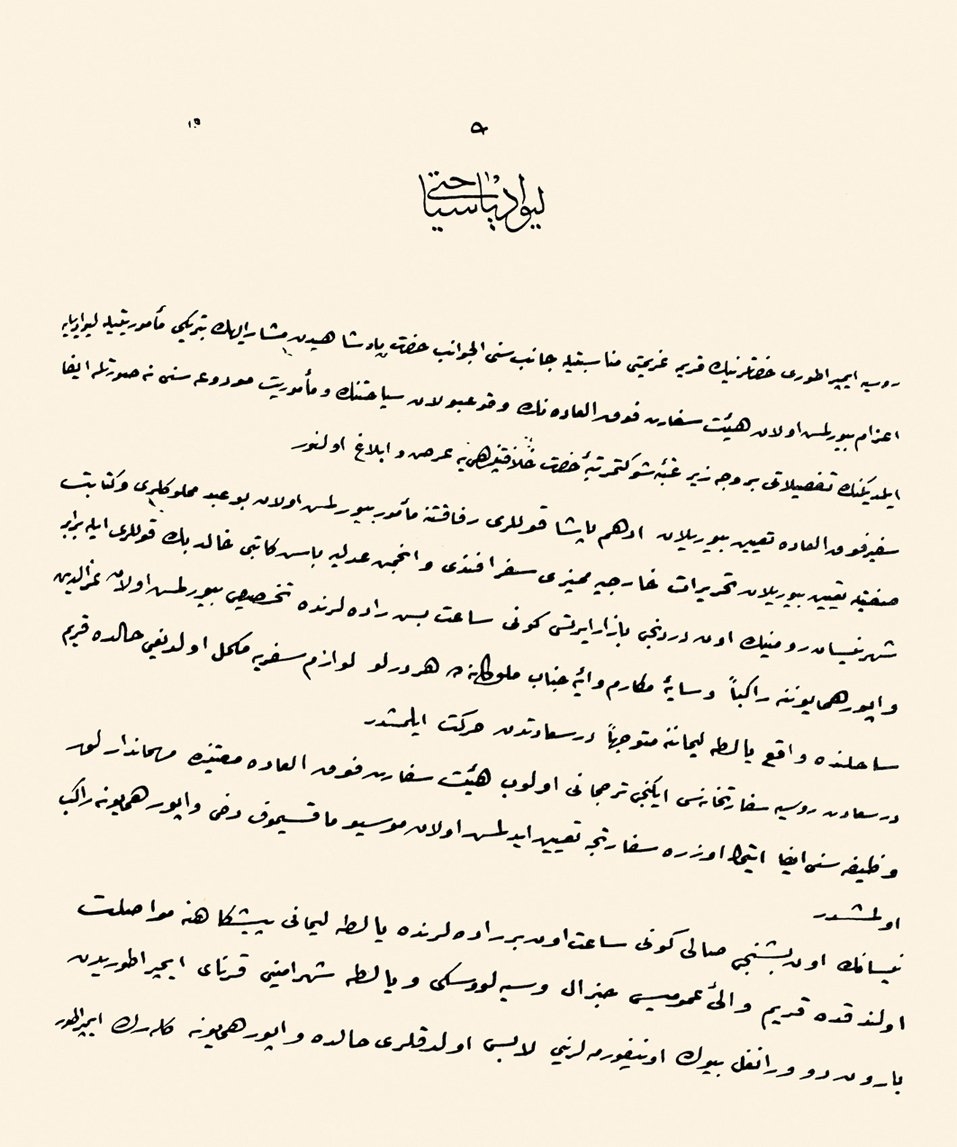 ١٥
٥
ليواديا سياحتى
روسيه ايمپراطورى حضرتلرينك قريمه عزيمتى مناسبتيله جانب سنى الجوانب حضرت پادشاهيدن مشار اليهك تبريكى مأموريتيله ليواديايه
اعزام بيورلمش اولان هيئت سفارت فوق العاده نك وقوعبولان سياحتنك ومأموريت مودوعه سنى نه صورتله ايفا
ايلديكنك تفصيلاتى بروجه زير عتبۀ شوكتمرتبۀ حضرت خلافتپناهى يه عرض و ابلاغ اولنور
سفير فوق العاده تعيين بيوريلان ادهم پاشا قوللرى رفاقتنه مأمور بيورلمش اولان بو عبد مملوكلرى وكتابت
صفتيله تعيين بيوريلان تحريرات خارجيه مميزى سفر افندى و انجمن عدليه باش كاتبى خالد بك قوللرى ايله برابر
شهر نيسان رومينك اون دردنجى بازار ايرتسى كونى ساعت بش راده لرنده تخصيص بيورلمش اولان عزالدين
واپور همايوننه راكباً وسايۀ مكارم وايۀ جناب ملوكانه ده هر درلو لوازم سفريه مكمل اولديغى حالده قريم
ساحلنده واقع يالطه ليماننه متوجهاً درسعادتدن حركت ايلمشدر
درسعادت روسيه سفارتخانه سى ايكنجى ترجمانى اولوب هيئت سفارت فوق العاده معيتنده مهماندارلق
وظيفه سنى ايفا ايتمك اوزره سفارتجه تعيين ايدلمش اولان موسيو ماقسيموف دخى واپور همايونه راكب
اولمشدر
نيسانك اون بشنجى صالى كونى ساعت اون بر راده لرنده يالطه ليمانى پيشكاهنه مواصلت
اولندقده قريم والئ عموميسى جنرال وسيه لووسكى ويالطه شهرامينى قرناى ايمپراطوريدن
بارون دو ورانغل بيوك اونيفورمه لرينى لابس اولدقلرى حالده واپور همايونه كله رك ايمپراطور